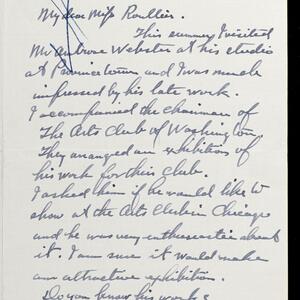 My dear Miss Roullier.
This summer I visited
Mr Ambrose Webster at his studio
at Provincetown and I was much
impressed by his late work.
I accompanied the chairman of
The Arts Club of Washington.
They arranged an exhibition of
his work for this Club.
I asked him if he would like to
show at the Arts Club in Chicago
and he was very enthusiastic about
it. I am sure it would make
an attractive exhibition.
Do you know his work